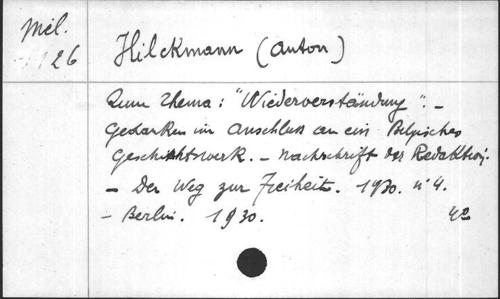 Mél.
26
Hilckmann (Anton)
Zum Thema: "Wiederverständung". –
Gedanken im Anschluss an ein Belgisches
Geschichtswerk. – Nachschrift der Redaktion.
– Der Weg zur Freiheit. 1930. n° 4.
– Berlin. 1930. 4°